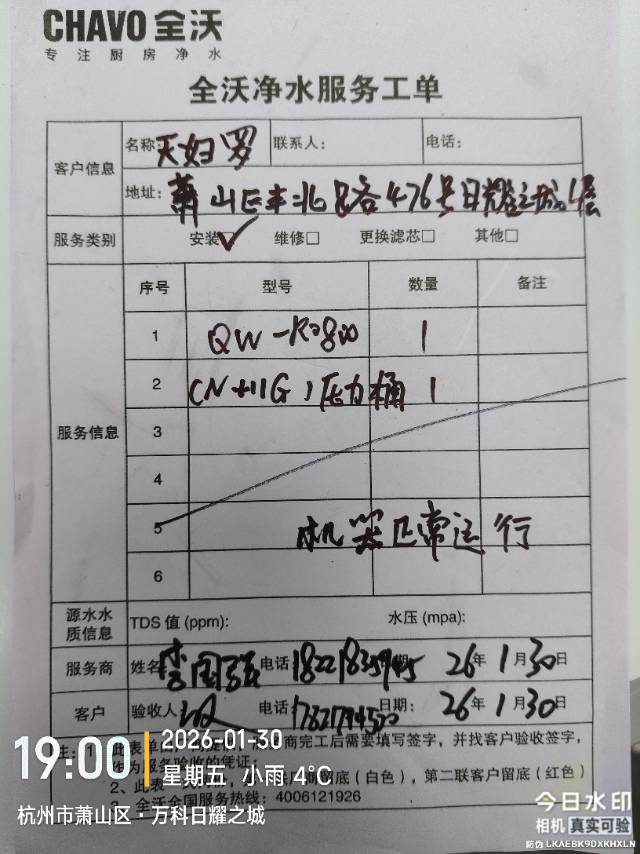 CHAVO 全沃
专注厨房净水
全沃净水服务工单
客户信息 名称 天妇罗 联系人: 电话:
地址: 萧山区丰北路476号日耀之城
服务类别 安装☑ 维修□ 更换滤芯□ 其他□
服务信息 序号 型号 数量 备注
1 QW-RO800 1
2 1
3
4
5 机器正常运行
6
源水水质信息 TDS 值 (ppm): 水压 (mpa):
服务商 姓名 李国强 电话: 26年1月30日
客户 验收人 电话: 日期: 26年1月30日
商完工后需要填写签字，并找客户验收签字，
作为服务验收的凭证；
2、此表 留底（白色），第二联客户留底（红色）
3、全沃全国服务热线：4006121926
19:00 2026-01-30
星期五 小雨 4℃
杭州市萧山区·万科日耀之城
今日水印
相机 真实可验
防伪 LKAEBK9DXKHXLN